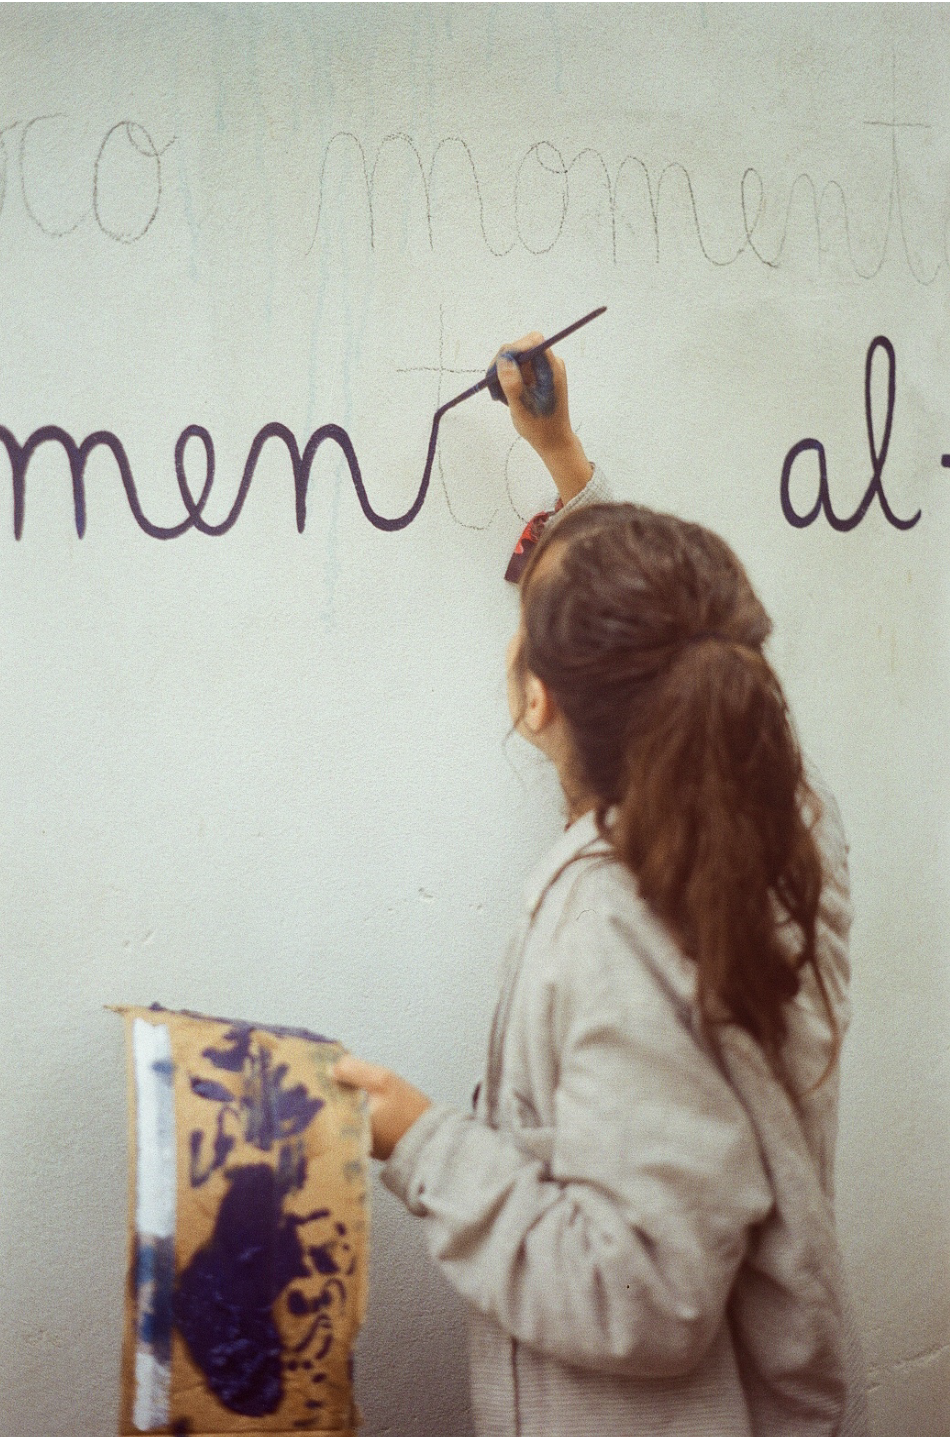 co moment
ment al